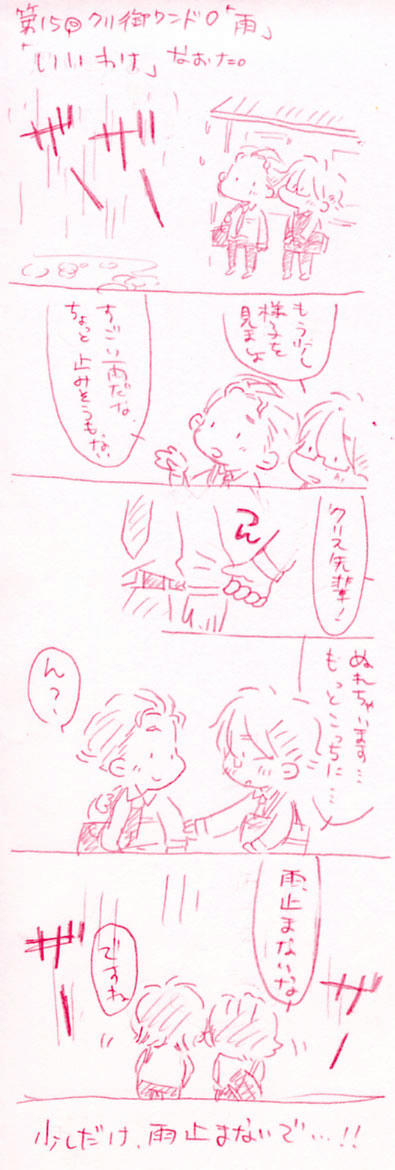 第15回クリ御ワンドロ「雨」
「いいわけ」なおた。
ザザーー
もう少し
様子を
見ましょ
すごい雨だな
ちょっと止みそうもない
クリス先輩!
つん
ぬれちゃいます…
もっとこっちに……
ん?
雨、止まないな
ですね
ザー
ザー
少しだけ、雨止まないで…!!